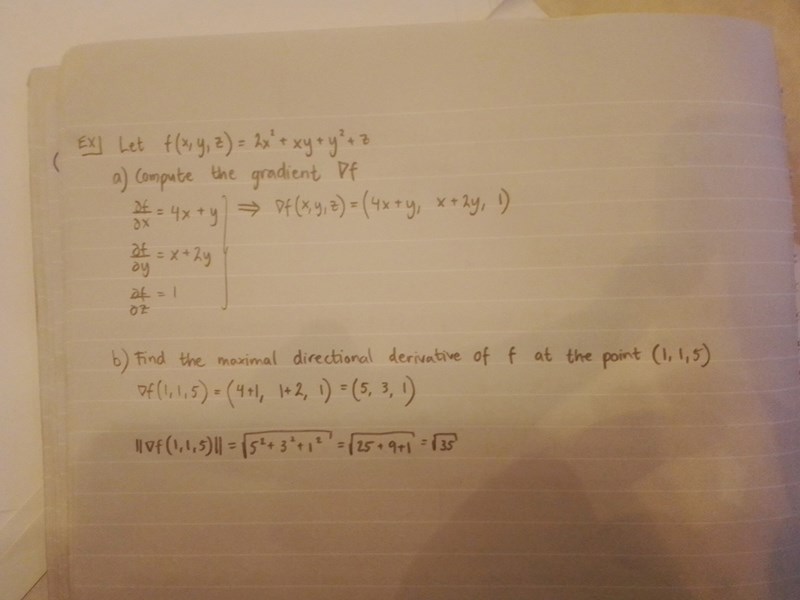 EX] Let f(x,y,z) = 2x² + xy + y² + z
a) Compute the gradient ∇f
∂f/∂x = 4x + y ⇒ ∇f(x,y,z) = (4x+y, x+2y, 1)
∂f/∂y = x + 2y
∂f/∂z = 1
b) Find the maximal directional derivative of f at the point (1,1,5)
∇f(1,1,5) = (4+1, 1+2, 1) = (5, 3, 1)
||∇f(1,1,5)|| = √(5² + 3² + 1²) = √(25 + 9 + 1) = √35